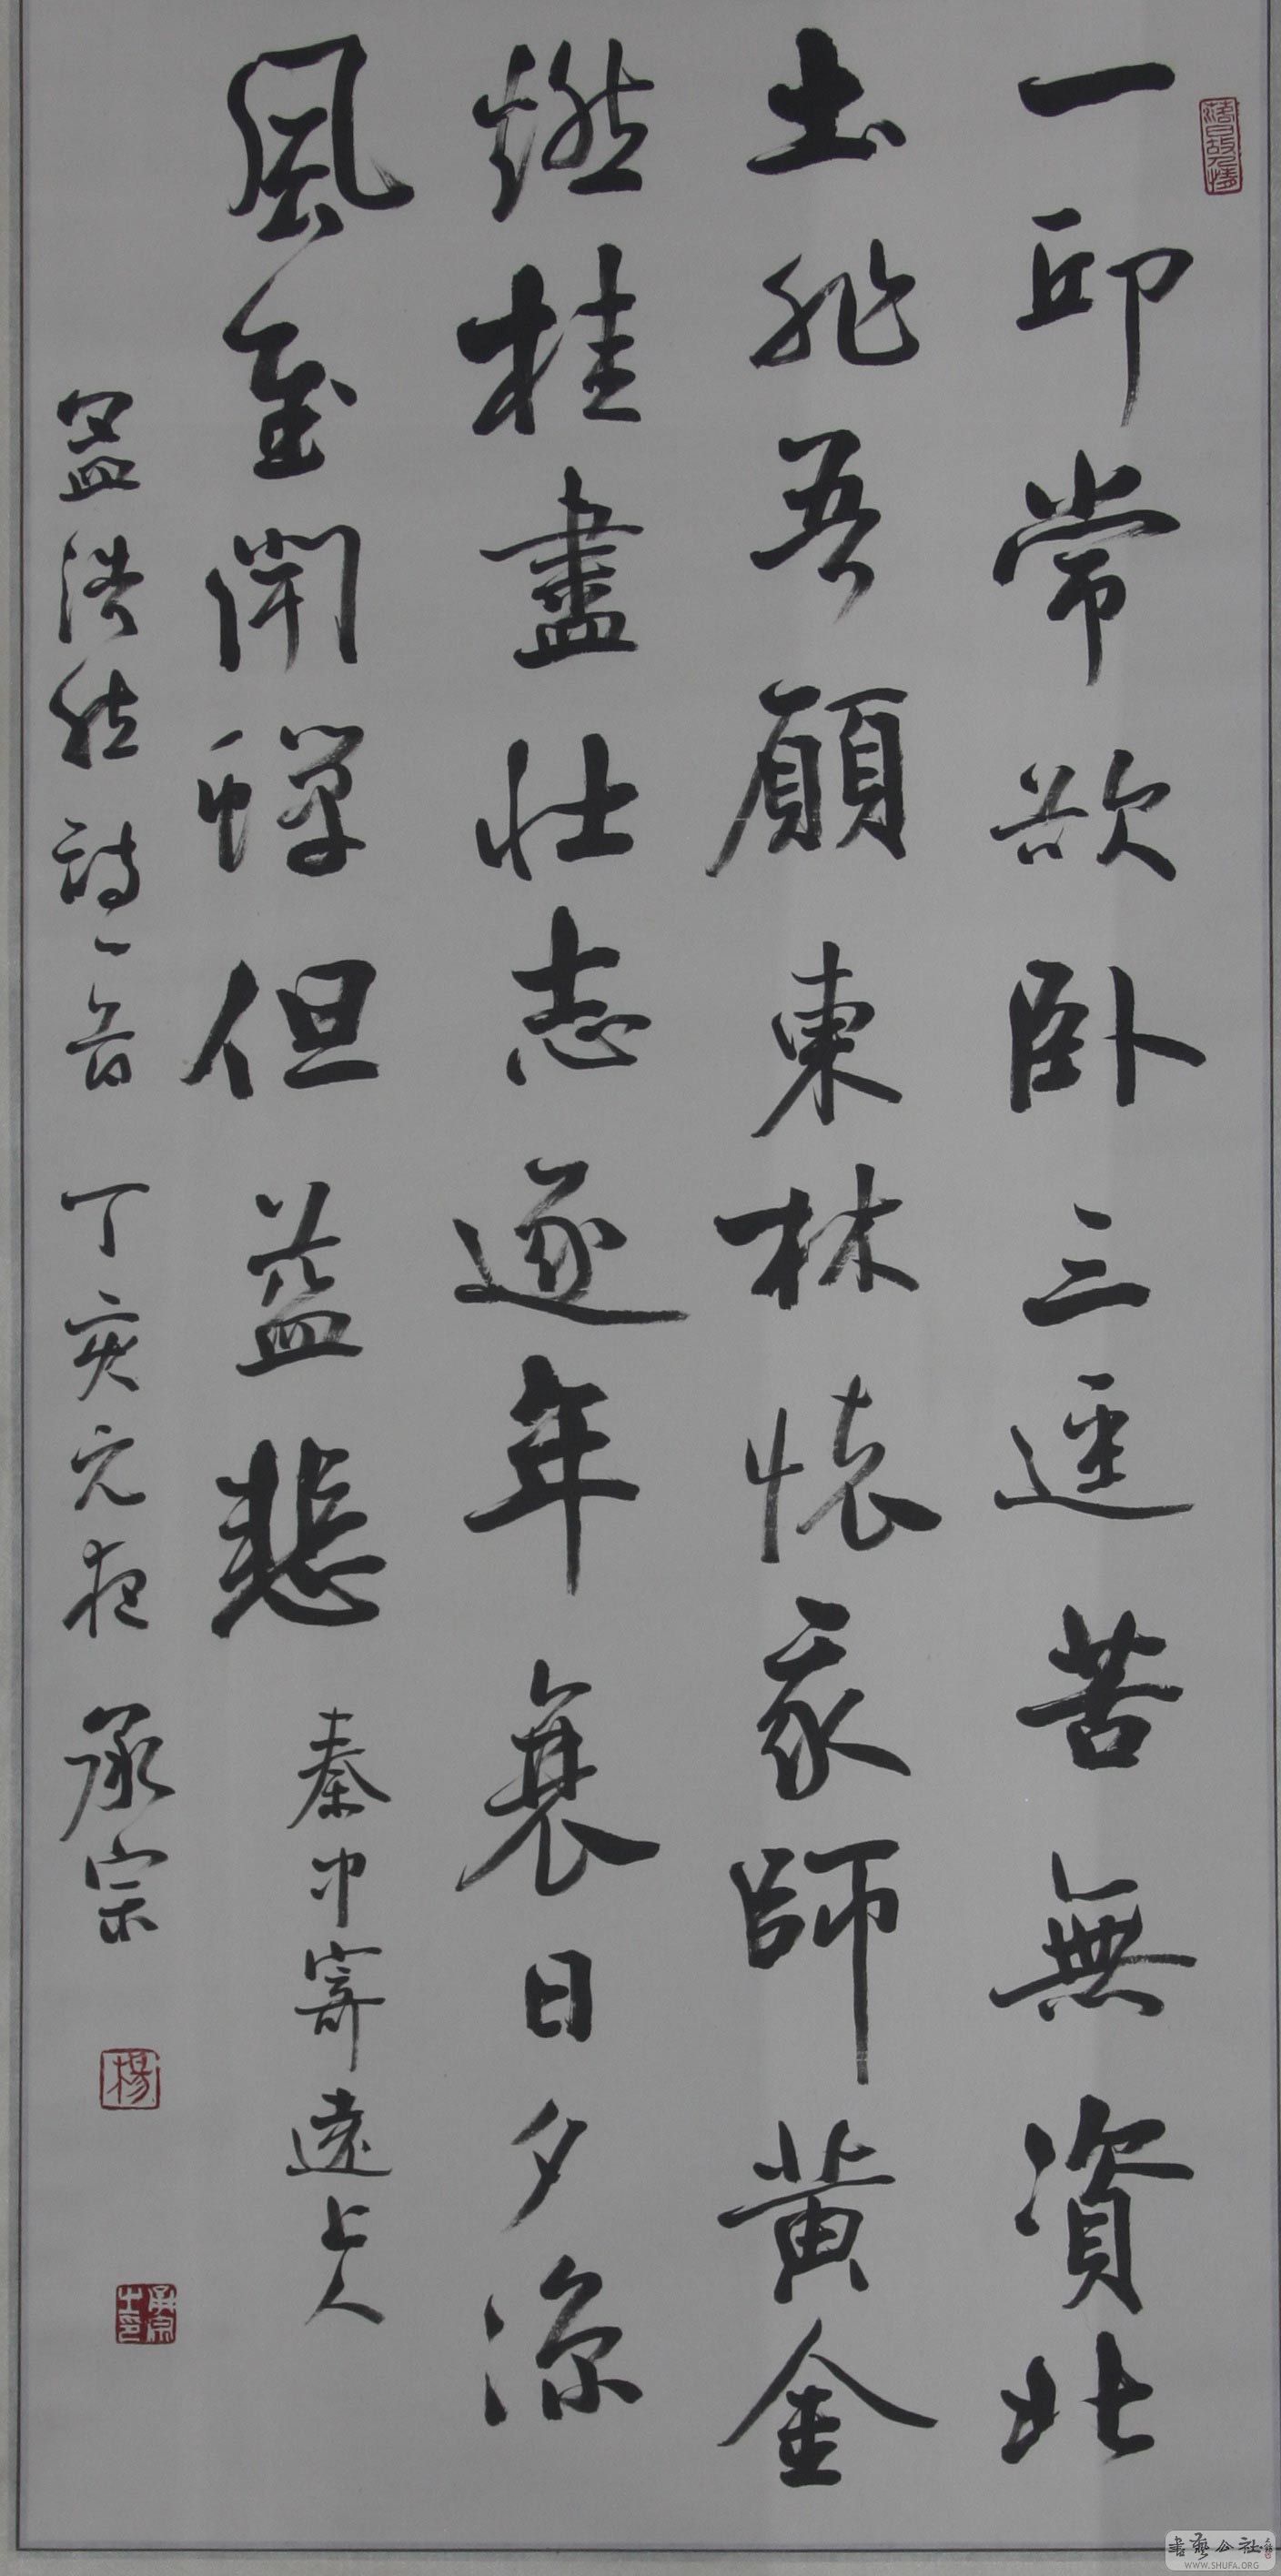 落日故人情
一邱常欲卧三逕苦無資北
土非吾願東林懷我師黃金
燃桂盡壯志逐年衰日夕涼
風至聞蟬但益悲 秦中寄遠上人
孟浩然詩一首 丁亥元夜 承宗
楊
承宗之印
書藝公社
WWW.SHUFA.ORG